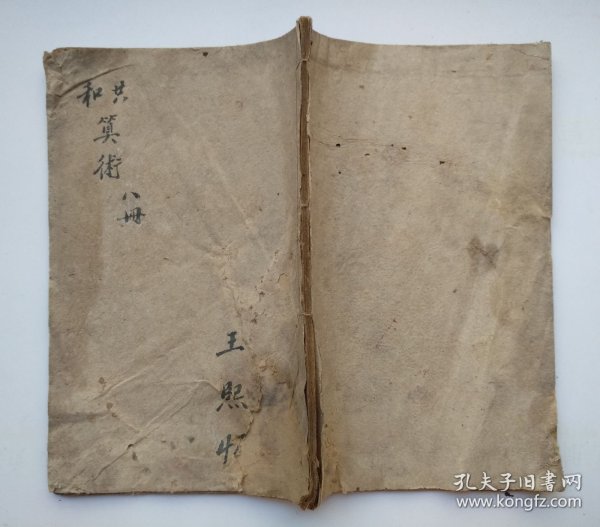 共和
算術
八冊
王熙
孔夫子旧书网
www.kongfz.com